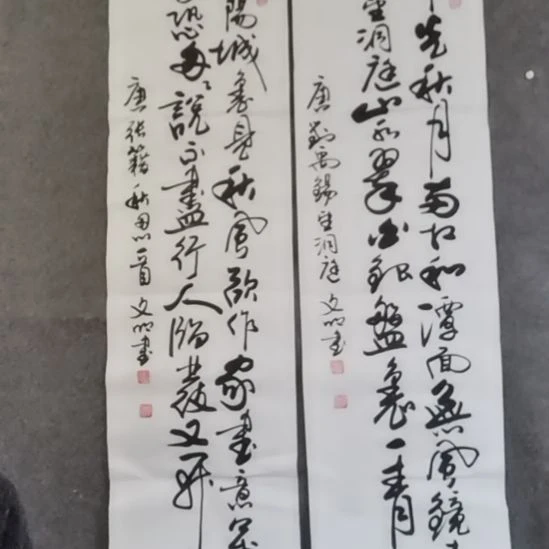 光秋月兩相和潭面無風鏡
望洞庭山水翠白銀盤裏一青
唐劉禹錫望洞庭 文明書
陽城裏見秋風欲作家書意萬
恐匆匆說不盡行人臨發又開
唐張籍秋思一首 文明書